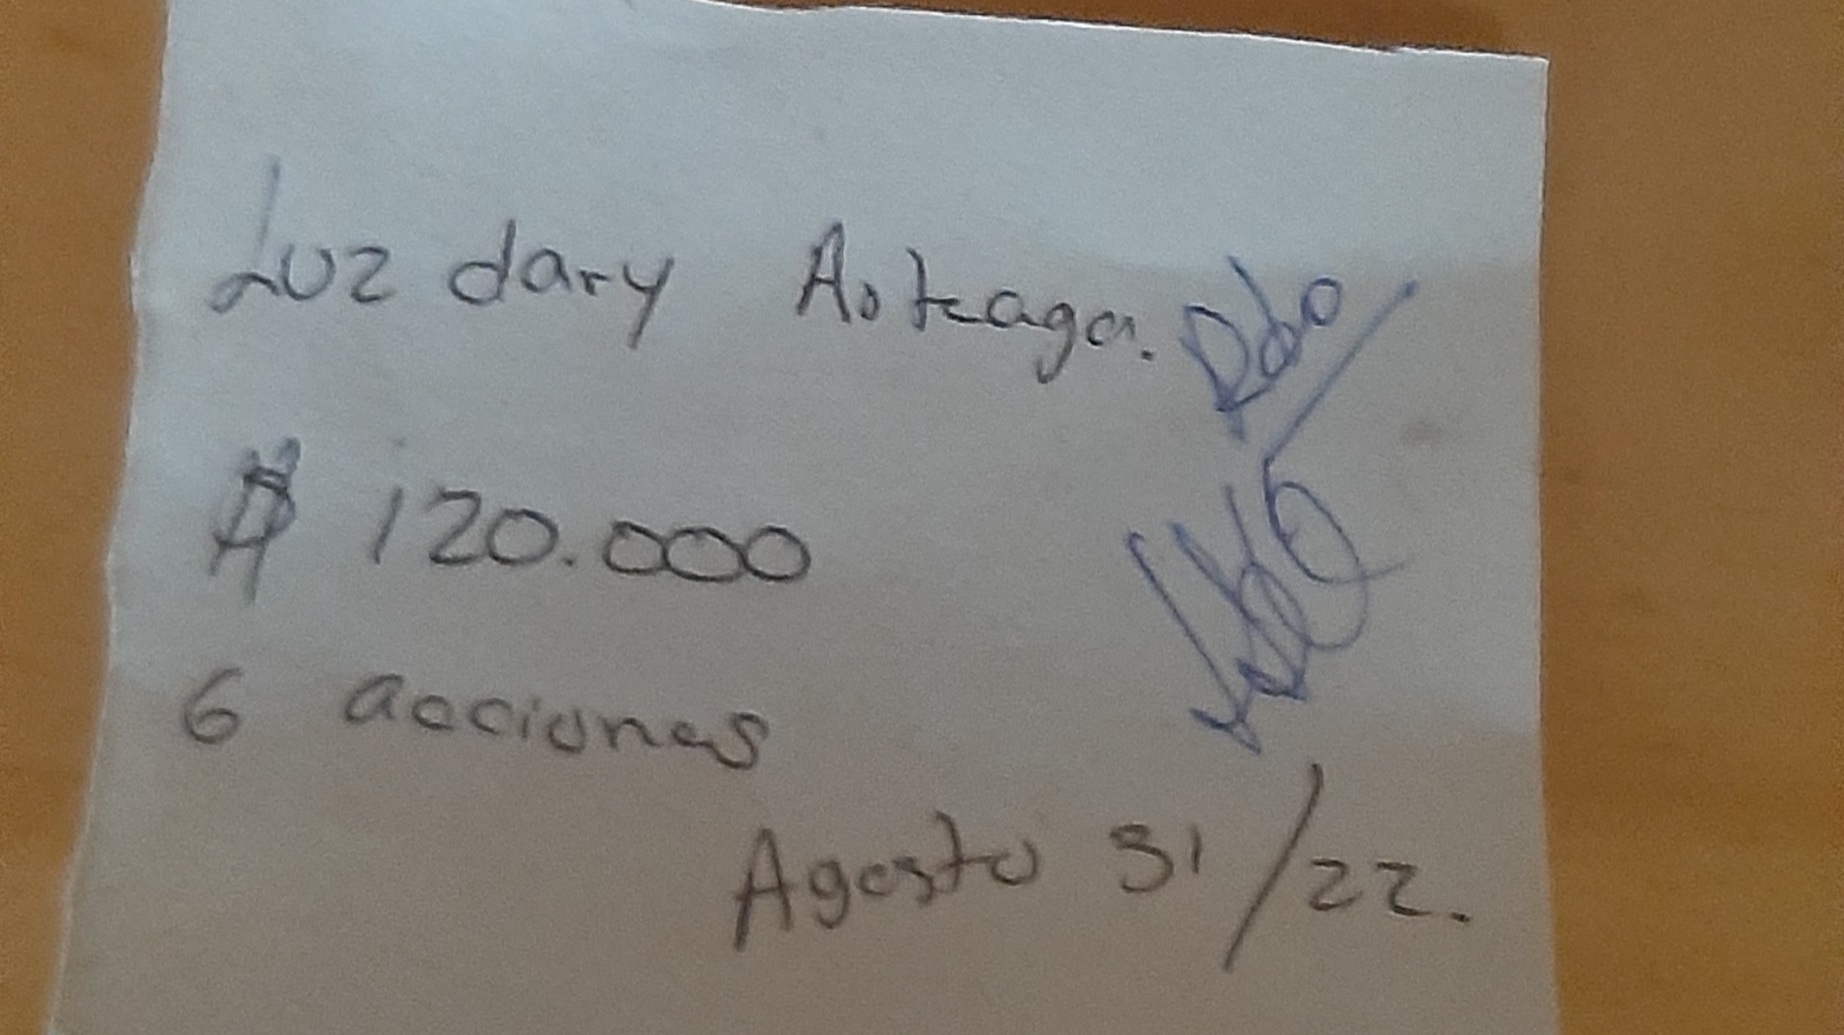 Luz dary Arteaga.
Rdo
$ 120.000
6 acciones
Agosto 31/22.